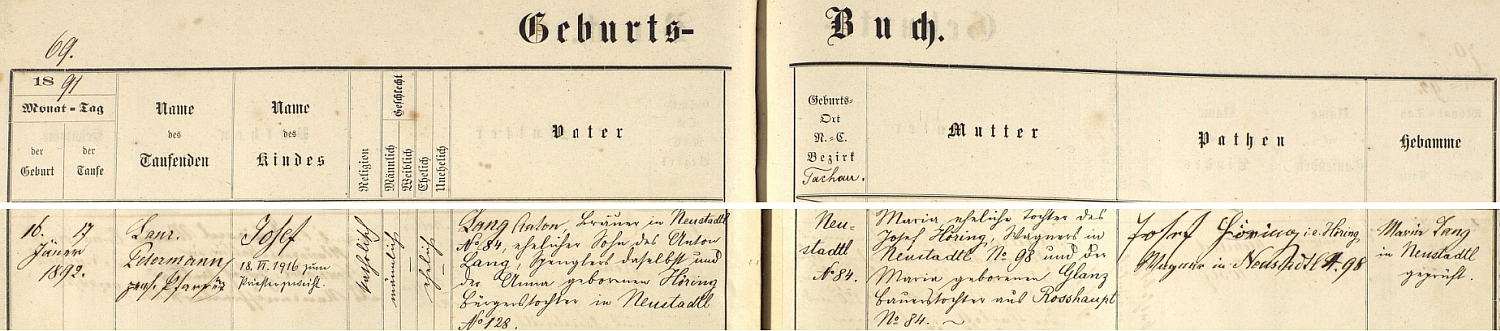 69.
Geburts-
Buch.
1891
Monat-Tag
der
Geburt
der
Taufe
Name
des
Taufenden
Name
des
Kindes
Religion
Geschlecht
Männlich
Weiblich
Ehelich
Unehelich
Vater
Geburts-
Ort
N.-C.
Bezirk
Tachau.
Mutter
Pathen
Hebamme
16. 17
Jäner
1892.
Laur.
Petermann
Josef
18. VI. 1916 zum
Priester geweiht.
katholisch
männlich
ehelich
Lang Anton, Bräuer in Neustadtl
No 84, ehelicher Sohn des Anton
Lang, Spenglers daselbst und
der Anna geborenen Höring
Bürgerstochter in Neustadtl
No 128.
Neu-
stadtl
No 84.
Maria eheliche Tochter des
Josef Höring, Wagners in
Neustadtl No 98 und der
Maria geborenen Glanz
Bauerstochter aus Rosshaupt
No 84.
Josef Höring i.e. Höring
Wagner in Neustadtl 98
Maria Lang
in Neustadtl
geprüft.